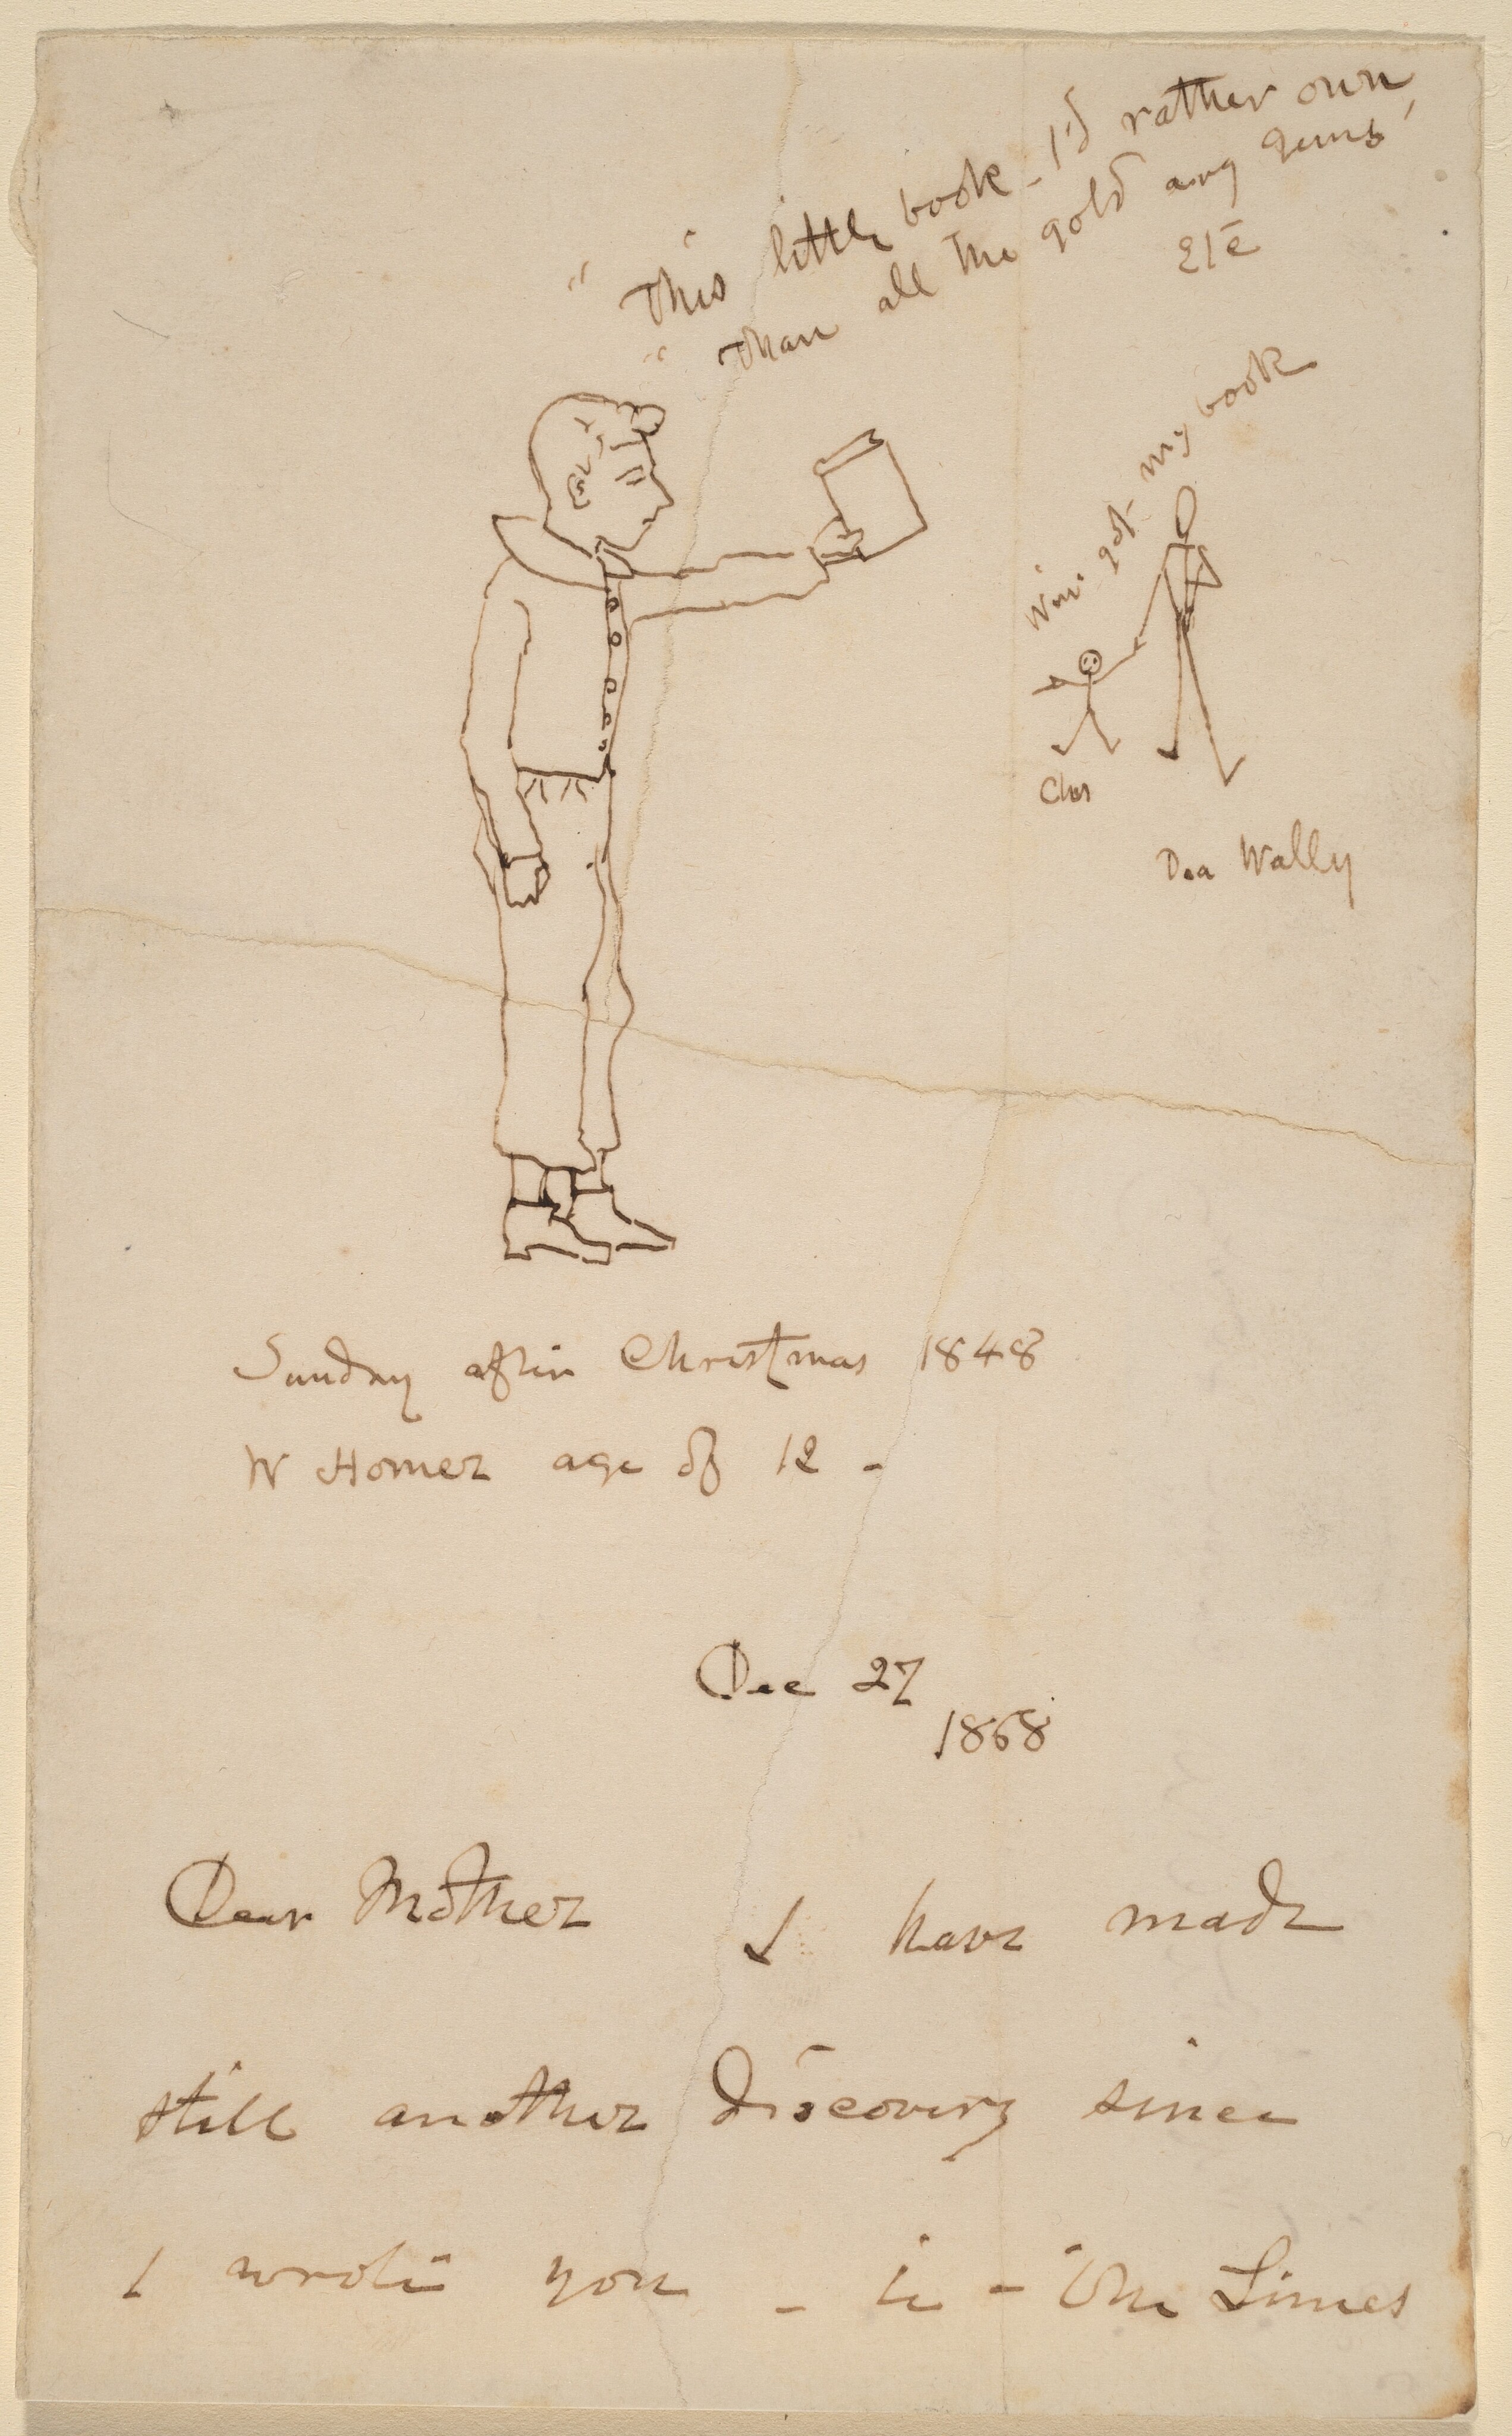 " This little book - I'd rather own
" Than all the gold any gems,
etc
Win. got my book
Chas
Dea Wally
Sunday after Christmas 1848
W Homer age of 12 -
Dec 27
1868
Dear Mother I have made
still another discovery since
I wrote you - ie - The Limes